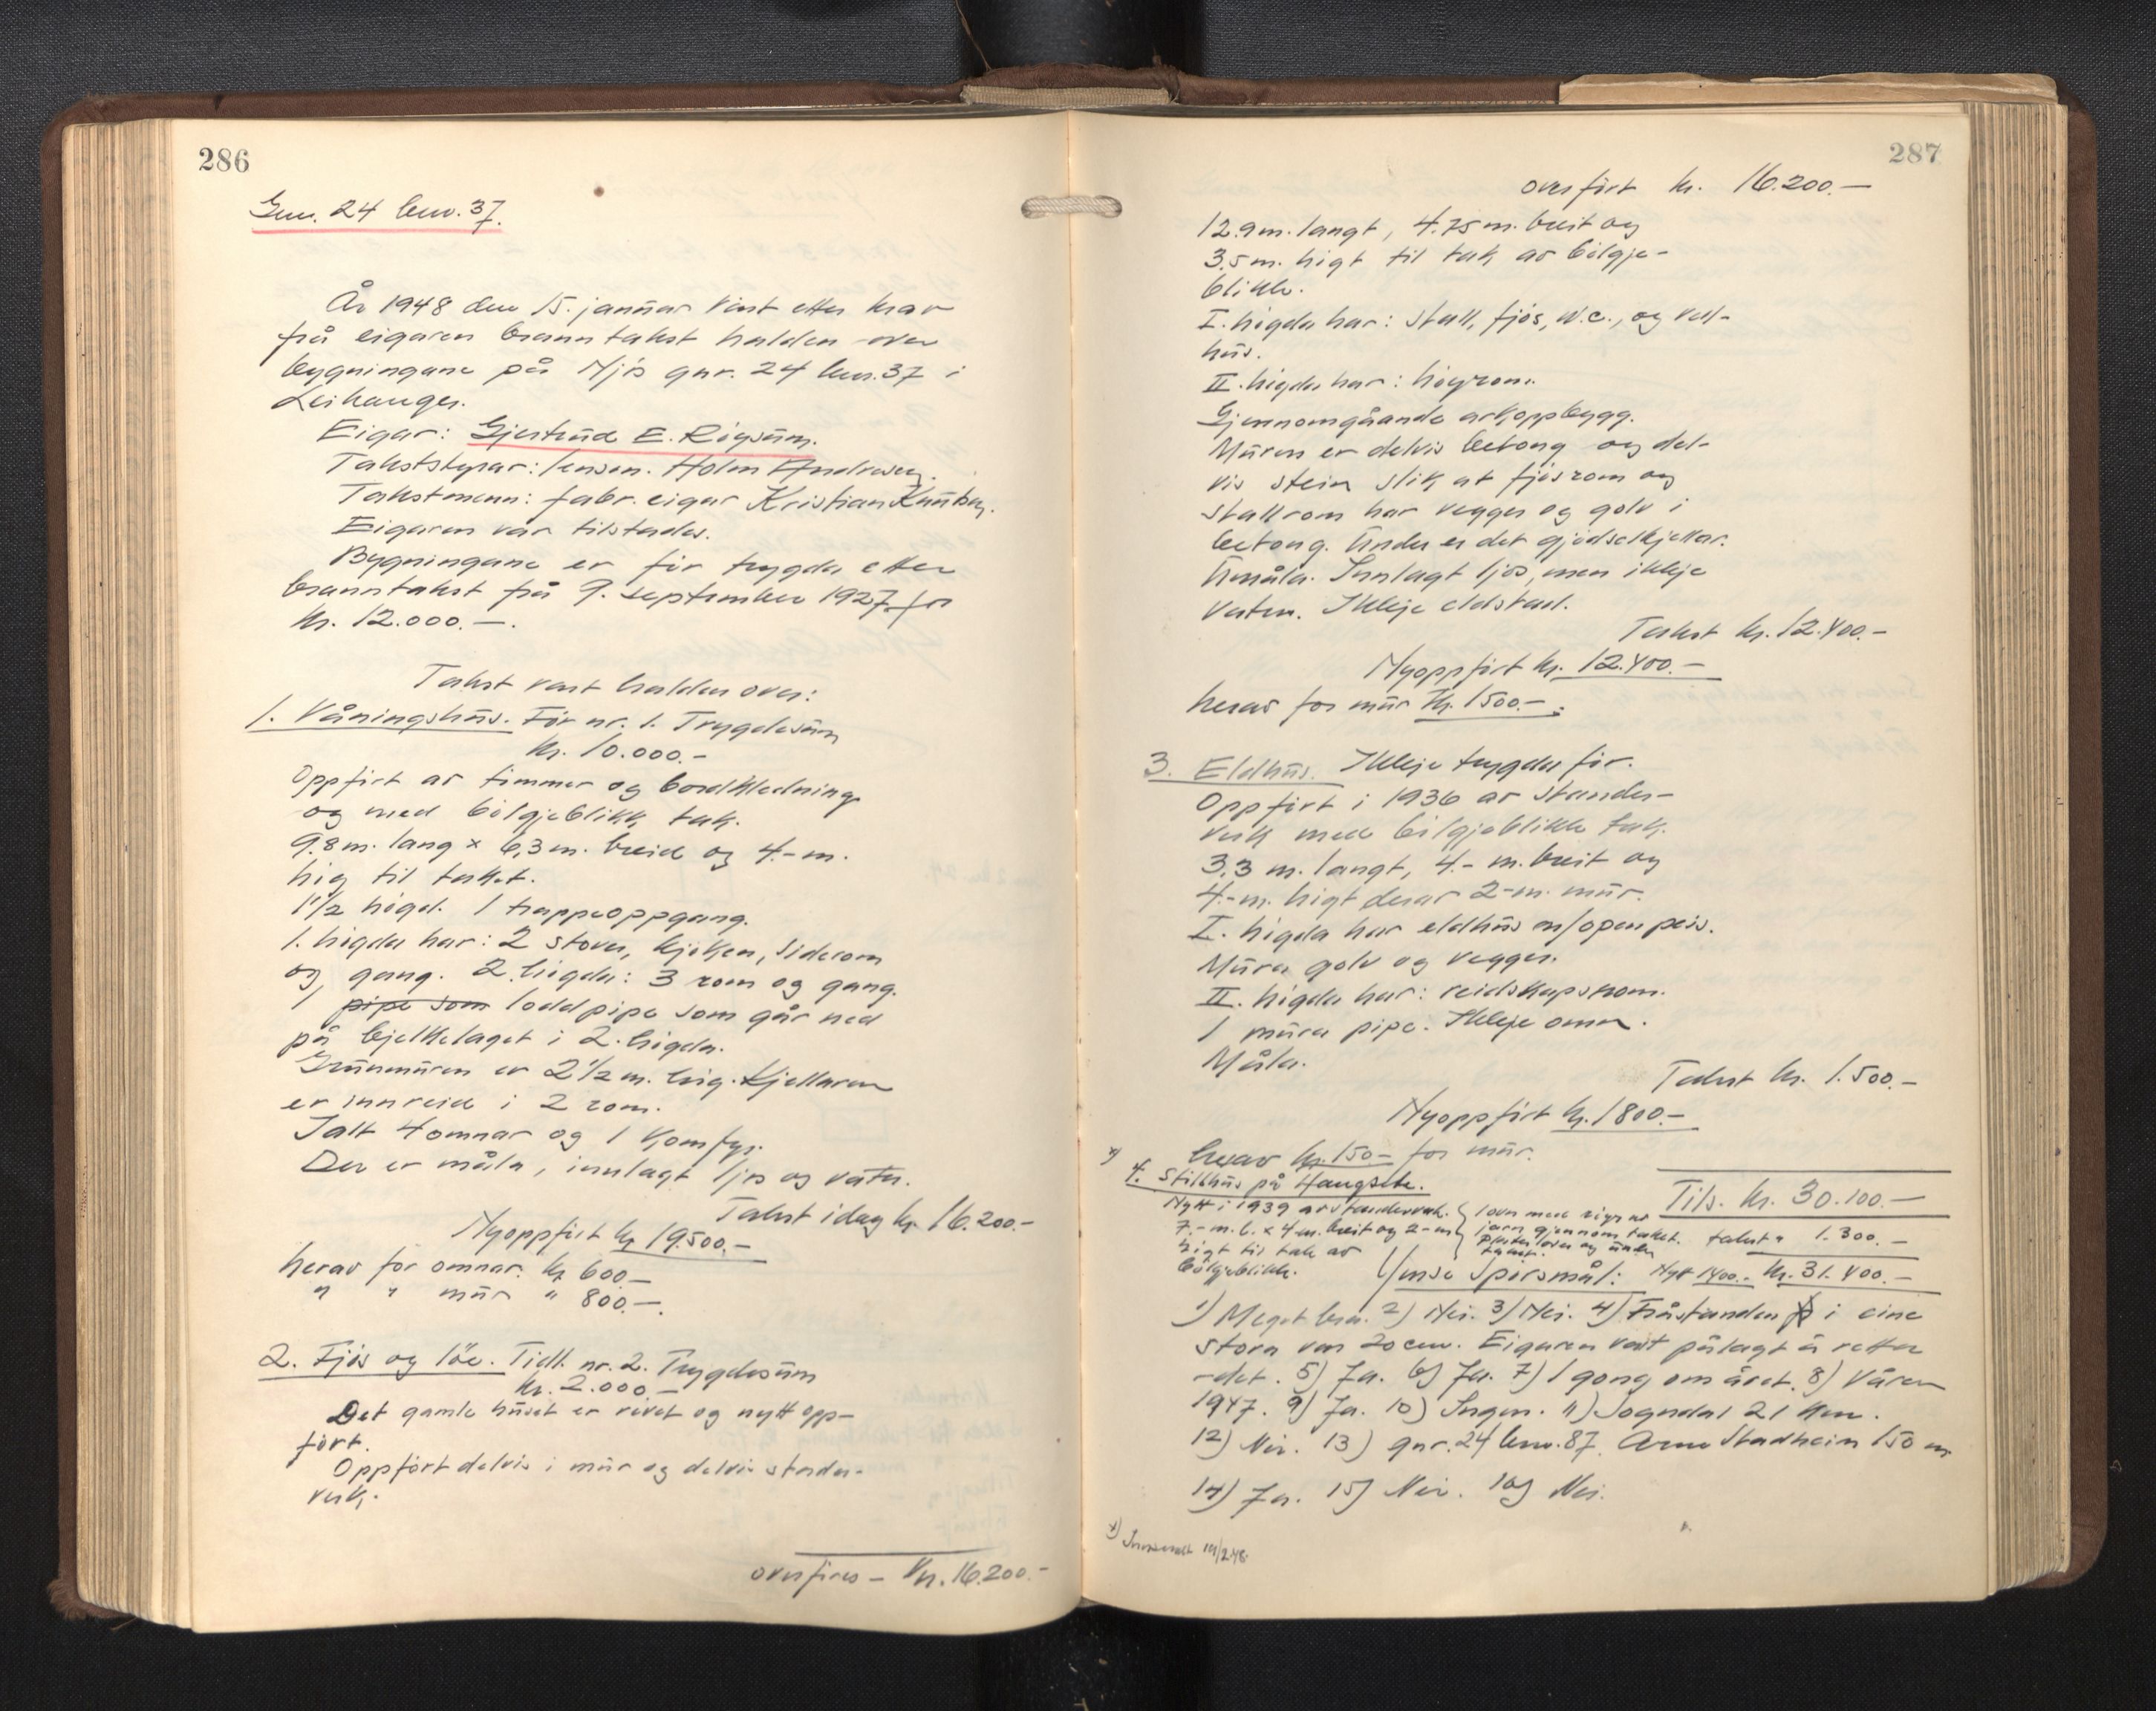 286
Gnr. 24 bnr. 37.
År 1948 den 15. januar vart etter krav
frå eigaren branntakst halden over
bygningane på Njøs gnr. 24 bnr. 37 i
Leikanger.
Eigar: Gjertrud E. Rigsum.
Takststyrar: lensm. Holm Andresen.
Takstmann: fabr. eigar Kristian
Eigaren var tilstades.
Bygningane er før trygda etter
branntakst frå 9. september 1927 for
kr. 12.000.—.
Takst vart halden over:
1. Våningshus. Før nr. 1. Trygdesum
kr. 10.000.-
Oppført av timmer og bordkledning
og med bølgjeblikk tak.
9.8 m. lang x 6,3 m. breid og 4.- m.
høg til taket.
1½ høgd. 1 trappeoppgang.
1. høgda har: 2 stover, kjøken, siderom
og gang. 2. høgda: 3 rom og gang.
1 pipe som loddpipe som går ned
på bjelkelaget i 2. høgda.
Grunmuren er 2½ m. høg. Kjellaren
er innreid i 2 rom.
Ialt 4 omnar og 1 komfyr.
Der er måla, innlagt ljos og vatn.
Takst idag kr. 16.200.-
Nyoppført kr 19.500.—
herav for omnar kr 600.—
" " mur " 800.—.
2. Fjøs og løe. Tidl. nr. 2. Trygdesum
kr. 2.000.—
Det gamle huset er rivet og nytt opp-
ført.
Oppført delvis i mur og delvis stender-
verk.
overføres — kr. 16.200.-
287
overført kr. 16.200.—
12.9 m. langt, 4.75 m. breit og
3.5 m. høgt til tak av bølgje-
blikk.
I. høgda har: stall, fjøs, W.C., og ved-
hus.
II. høgda har: høyrom.
Gjennomgåande arkoppbygg.
Muren er delvis betong og del-
vis stein slik at fjøsrom og
stallrom har vegger og golv i
betong. Under er det gjødselkjellar.
Umåla. Innlagt ljos, men ikkje
vatn. Ikkje eldstad.
Takst kr. 12.400.-
Nyoppført kr. 12.400.-
herav for mur kr. 1500.-.
3. Eldhus. Ikkje trygda før.
Oppført i 1936 av stender-
verk med bølgjeblikk tak.
3,3 m. langt, 4.- m. breit og
4.-m. høgt derav 2-m. mur.
I. høgda har eldhus m/open peis.
Mura golv og vegger.
II. høgda har: reidskapsrom.
1 mura pipe. Ikkje omn.
Måla.
Takst kr. 1.500.-
Nyoppført kr. 1800.-
herav kr. 150.- for mur.
x) 4. Stillhus på Haugsete.
Tils. kr. 30.100.—
Nytt i 1939 av stenderverk.
7.- m. l. x 4 m. breit og 2-m
høgt til tak av
bølgjeblikk.
1 ovn med røyr av
jarn gjennom taket.
plater over og under
taket.
takst " 1.300.—
Nytt 1400.- kr. 31.400.—
Ymse Spørsmål:
1) Meget bra. 2) Nei. 3) Nei. 4) Fråstanden i eine
stova var 20 cm. Eigaren vart pålagt å retta
det. 5) Ja. 6) Ja. 7) 1 gong om året. 8) Våren
1947. 9) Ja. 10) Ingen. 11) Sogndal 21 km.
12) Nei. 13) gnr. 24 bnr. 87. Arne Stadheim 150 m
14) Ja. 15) Nei. 16) Nei.